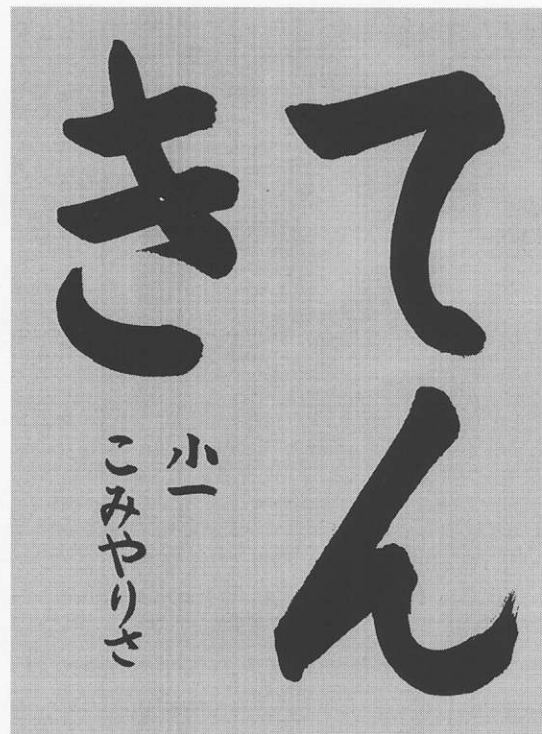 てん
き
小一
こみやりさ